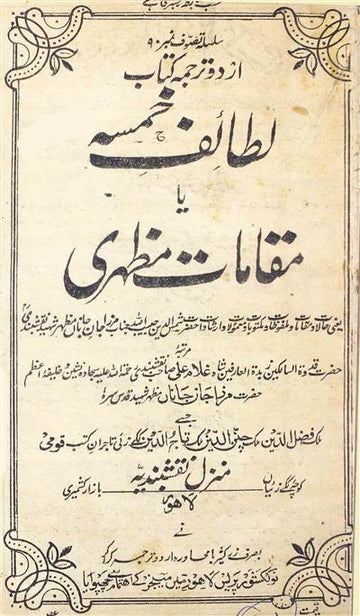 سلسلہ تصوف نمبر ۹۰
اردو ترجمہ کتاب
لطائف خمسہ
یا
مقامات مظہری
یعنی حالات و مقامات و ملفوظات و مکتوبات و معمولات و ارشادات حضرت شمس الدین حبیب اللہ جناب مرزا جان جاناں مظہر شہید نقشبندی
مرتبہ
حضرت قدوۃ السالکین زبدۃ العارفین شاہ غلام علی صاحب نقشبندی رحمۃ اللہ علیہ سجادہ نشین و خلیفہ اعظم
حضرت مرزا جان جاناں مظہر شہید قدس سرہ
جسے
ملک فضل الدین ملک چنن الدین ملک تاج الدین ککے زئی تاجران کتب قومی
منزل نقشبندیہ
کوچہ ککے زئیاں بازار کشمیری
لاہور
نے
بصرف زر کثیر با محاورہ اردو ترجمہ کرا کر
نولکشور پریس لاہور میں باہتمام چھپوایا